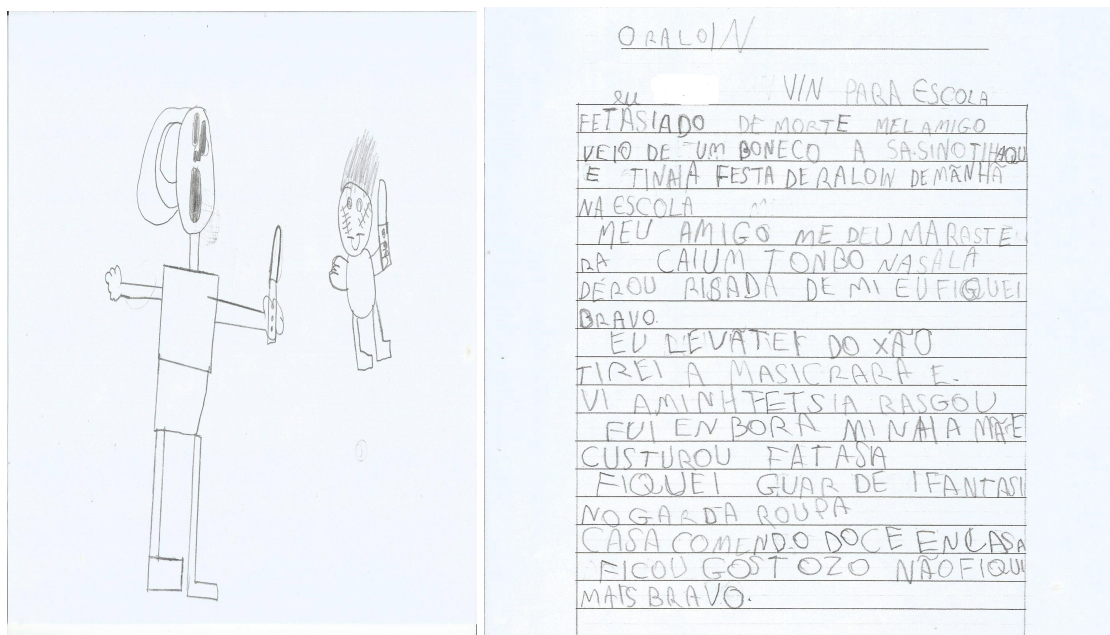 O RALOIN
eu VIN PARA ESCOLA
FETASIADO DE MORTE MEL AMIGO
VEIO DE UM BONECO A SASINO TIHAQU
E TINAIA FESTA DE RALOIN DE MANHÃ
NA ESCOLA
MEU AMIGO ME DEU MARASTE
RA CAI UM TONBO NA SALA
DEROU RISADA DE MI EU FIQUEI
BRAVO.
EU LEVATEI DO XÃO
TIREI A MASICRARA E.
VI AMINHFETSIA RASGOU
FUI EN BORA MINAIA MÃE
CUSTUROU FATASIA
FIQUEI GUARDE IFANTASI
NO GARDA ROUPA
CASA COMENDO DOCE EN CASA
FICOU GOSTOZO NÃO FIQUI
MAIS BRAVO.